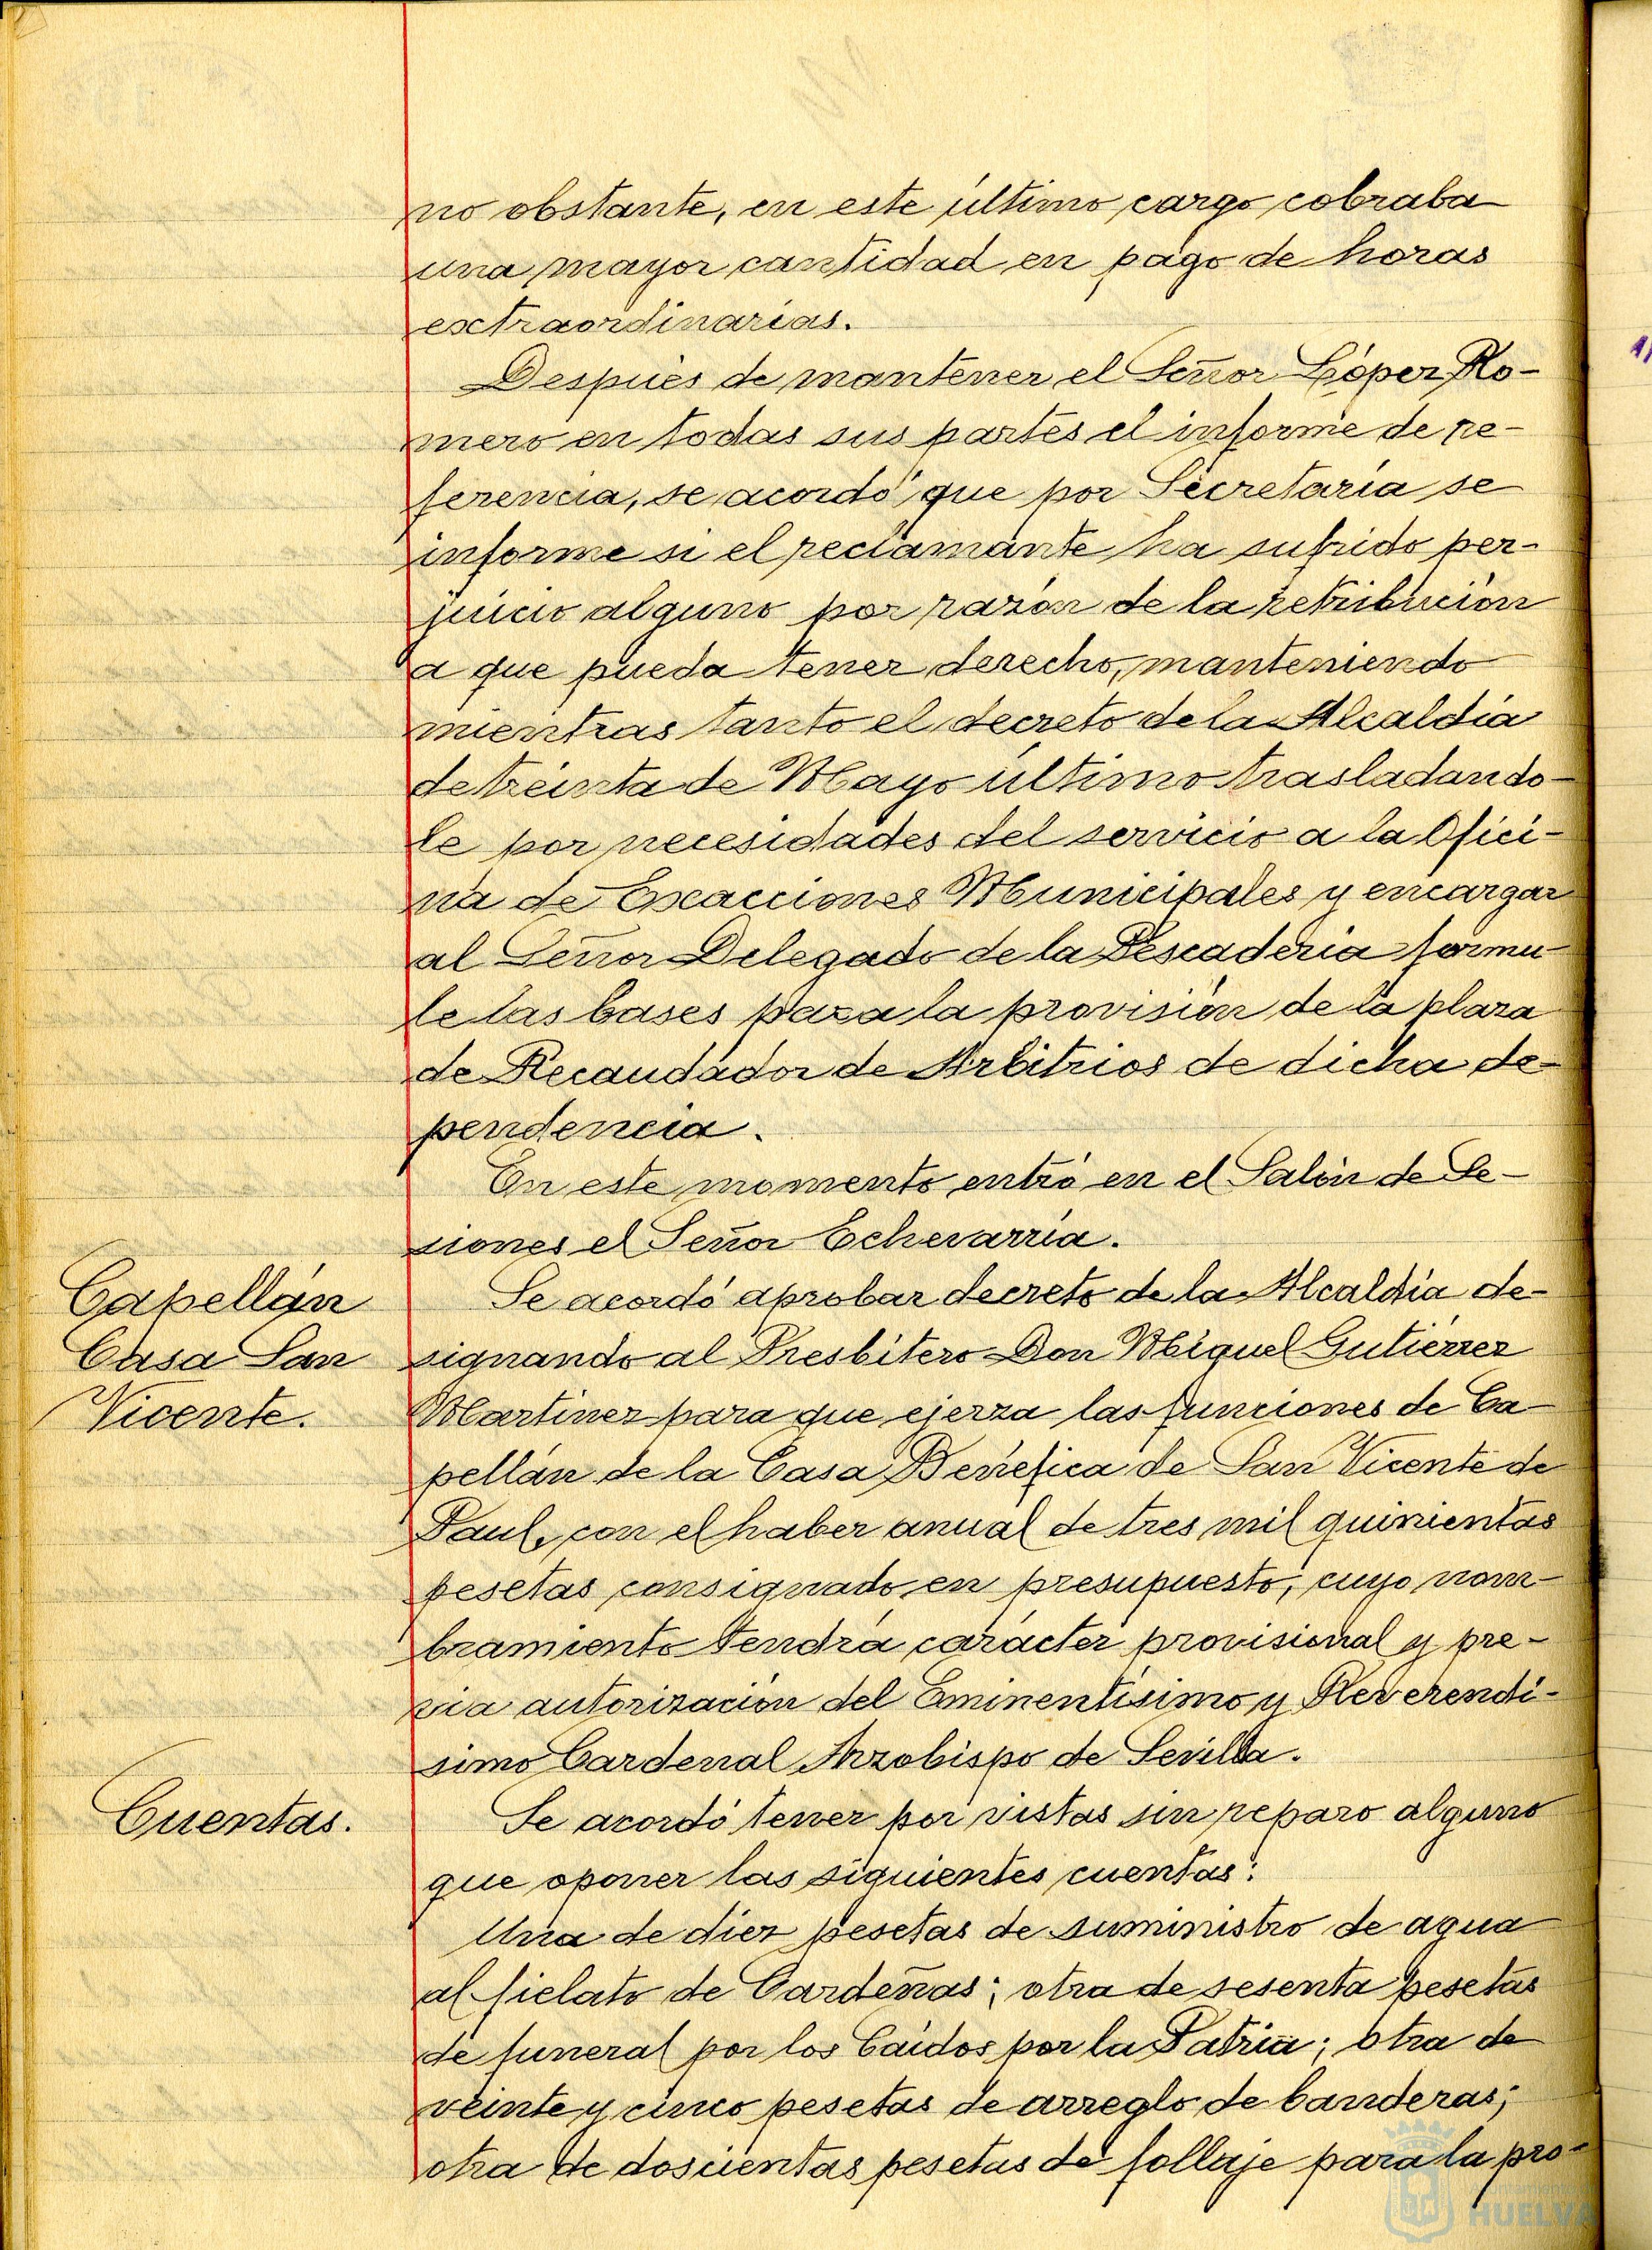 no obstante, en este último cargo cobraba
una mayor cantidad en pago de horas
extraordinarias.
Después de mantener el Señor López Ro-
mero en todas sus partes el informe de re-
ferencia, se acordó que por Secretaría se
informe si el reclamante ha sufrido per-
juicio alguno por razón de la retribución
a que pueda tener derecho, manteniendo
mientras tanto el decreto de la Alcaldía
de treinta de Mayo último trasladando-
le por necesidades del servicio a la Ofici-
na de Exacciones Municipales y encargar
al Señor Delegado de la Pescadería formu-
le las bases para la provisión de la plaza
de Recaudador de Arbitrios de dicha de-
pendencia.
En este momento entró en el Salón de Se-
siones el Señor Echevarría.
Capellán
Casa San
Vicente.
Se acordó aprobar decreto de la Alcaldía de-
signando al Presbítero Don Miguel Gutiérrez
Martínez para que ejerza las funciones de Ca-
pellán de la Casa Benéfica de San Vicente de
Paul, con el haber anual de tres mil quinientas
pesetas consignado en presupuesto, cuyo nom-
bramiento tendrá carácter provisional y pre-
via autorización del Eminentísimo y Reverendí-
simo Cardenal Arzobispo de Sevilla.
Cuentas.
Se acordó tener por vistas sin reparo alguno
que oponer las siguientes cuentas:
Una de diez pesetas de suministro de agua
al fielato de Cardeñas; otra de sesenta pesetas
de funeral por los Caídos por la Patria; otra de
veinte y cinco pesetas de arreglo de banderas;
otra de doscientas pesetas de follaje para la pro-
HUELVA